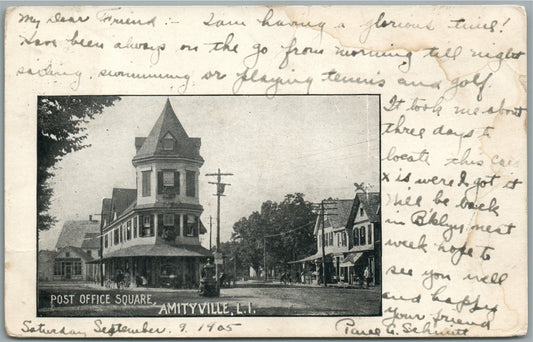 My Dear Friend :- I am having a glorious time!
Have been always on the go from morning till night
sailing, swimming or playing tennis and golf.
It took me about
three days to
locate this card
x is where I got it
Will be back
in B'klyn next
week hope to
see you well
and happy
your friend
POST OFFICE SQUARE, AMITYVILLE, L.I.
Saturday September 9. 1905 G. Schmitt